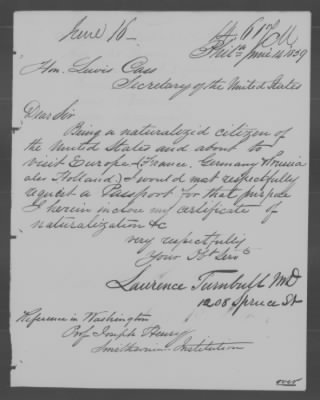 June 16
Phila June 14 1859
Hon. Lewis Cass
Secretary of the United States
Dear Sir
Being a naturalized citizen of
the United States and about to
visit Europe (France, Germany & Prussia
also Holland) I would most respectfully
request a Passport for that purpose
I herein inclose my certificate of
naturalization &c
very respectfully
Your Obt Servt
Laurence Turnbull MD
1208 Spruce St
Reference in Washington
Prof Joseph Henry
Smithsonian Institution
over